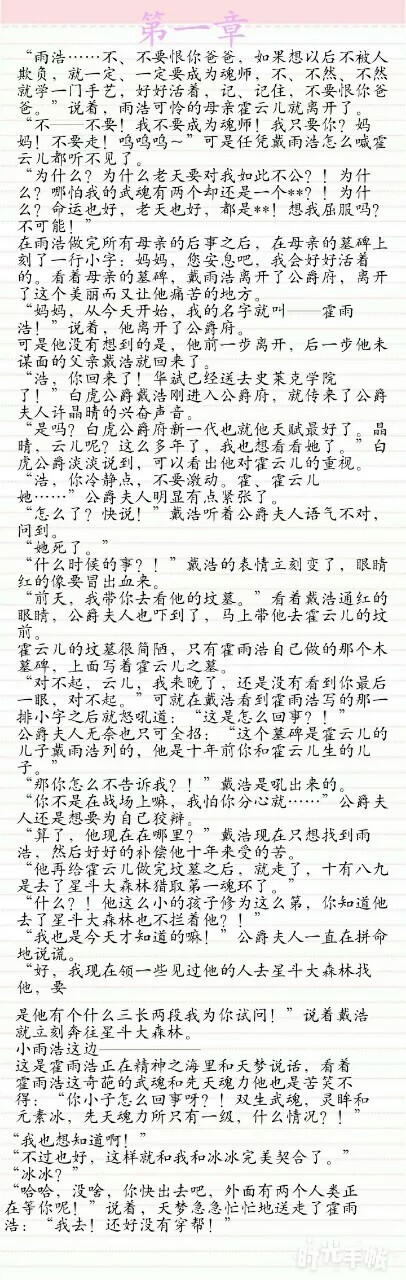 第一章
“雨浩……不、不要恨你爸爸，如果想以后不被人
欺负，就一定、一定要成为魂师，不、不然、不然
就学一门手艺，好好活着，记、记住，不要恨你爸
爸。”说着，雨浩可怜的母亲霍云儿就离开了。
“不——不要！我不要成为魂师！我只要你？妈
妈！不要走！呜呜呜~”可是任凭戴雨浩怎么喊霍
云儿都听不见了。
“为什么？为什么老天要对我如此不公？！为什
么？哪怕我的武魂有两个却还是一个**？！为什
么？命运也好，老天也好，都是**！想我屈服吗？
不可能！”
在雨浩做完所有母亲的后事之后，在母亲的墓碑上
刻了一行小字：妈妈，您安息吧，我会好好活着
的。看着母亲的墓碑，戴雨浩离开了公爵府，离开
了这个美丽而又让他痛苦的地方。
“妈妈，从今天开始，我的名字就叫——霍雨
浩！”说着，他离开了公爵府。
可是他没有想到的是，他前一步离开，后一步他未
谋面的父亲戴浩就回来了。
“浩，你回来了！华斌已经送去史莱克学院
了！”白虎公爵戴浩刚进入公爵府，就传来了公爵
夫人许晶晴的兴奋声音。
“是吗？白虎公爵府新一代也就他天赋最好了。晶
晴，云儿呢？这么多年了，我也想看看她了。”白
虎公爵淡淡说到，可以看出他对霍云儿的重视。
“浩，你冷静点，不要激动。霍、霍云儿
她……”公爵夫人明显有点紧张了。
“怎么了？快说！”戴浩听着公爵夫人语气不对，
问到。
“她死了。”
“什么时候的事？！”戴浩的表情立刻变了，眼睛
红的像要冒出血来。
“前天，我带你去看他的坟墓。”看着戴浩通红的
眼睛，公爵夫人也吓到了，马上带他去霍云儿的坟
前。
霍云儿的坟墓很简陋，只有霍雨浩自己做的那个木
墓碑，上面写着霍云儿之墓。
“对不起，云儿，我来晚了，还是没有看到你最后
一眼，对不起。”可就在戴浩看到霍雨浩写的那一
排小字之后就怒吼道：“这是怎么回事？！”
公爵夫人无奈也只可全招：“这个墓碑是霍云儿的
儿子戴雨浩列的，他是十年前你和霍云儿生的儿
子。”
“那你怎么不告诉我？！”戴浩是吼出来的。
“你不是在战场上嘛，我怕你分心就……”公爵夫
人还是想要为自己狡辩。
“算了，他现在在哪里？”戴浩现在只想找到雨
浩，然后好好的补偿他十年来受的苦。
“他再给霍云儿做完坟墓之后，就走了，十有八九
是去了星斗大森林猎取第一魂环了。”
“什么？！他这么小的孩子修为这么第，你知道他
去了星斗大森林也不拦着他？！”
“我也是今天才知道的嘛！”公爵夫人一直在拼命
地说谎。
“好，我现在领一些见过他的人去星斗大森林找
他，要
是他有个什么三长两段我为你试问！”说着戴浩
就立刻奔往星斗大森林。
小雨浩这边——————
这是霍雨浩正在精神之海里和天梦说话，看着
霍雨浩这奇葩的武魂和先天魂力他也是苦笑不
得：“你小子怎么回事呀？！双生武魂，灵眸和
元素冰，先天魂力所只有一级，什么情况？！”
“我也想知道啊！”
“不过也好，这样就和我和冰冰完美契合了。”
“冰冰？”
“哈哈，没啥，你快出去吧，外面有两个人类正
在等你呢！”说着，天梦急急忙忙地送走了霍雨
浩：“我去！还好没有穿帮！”
时光手帐